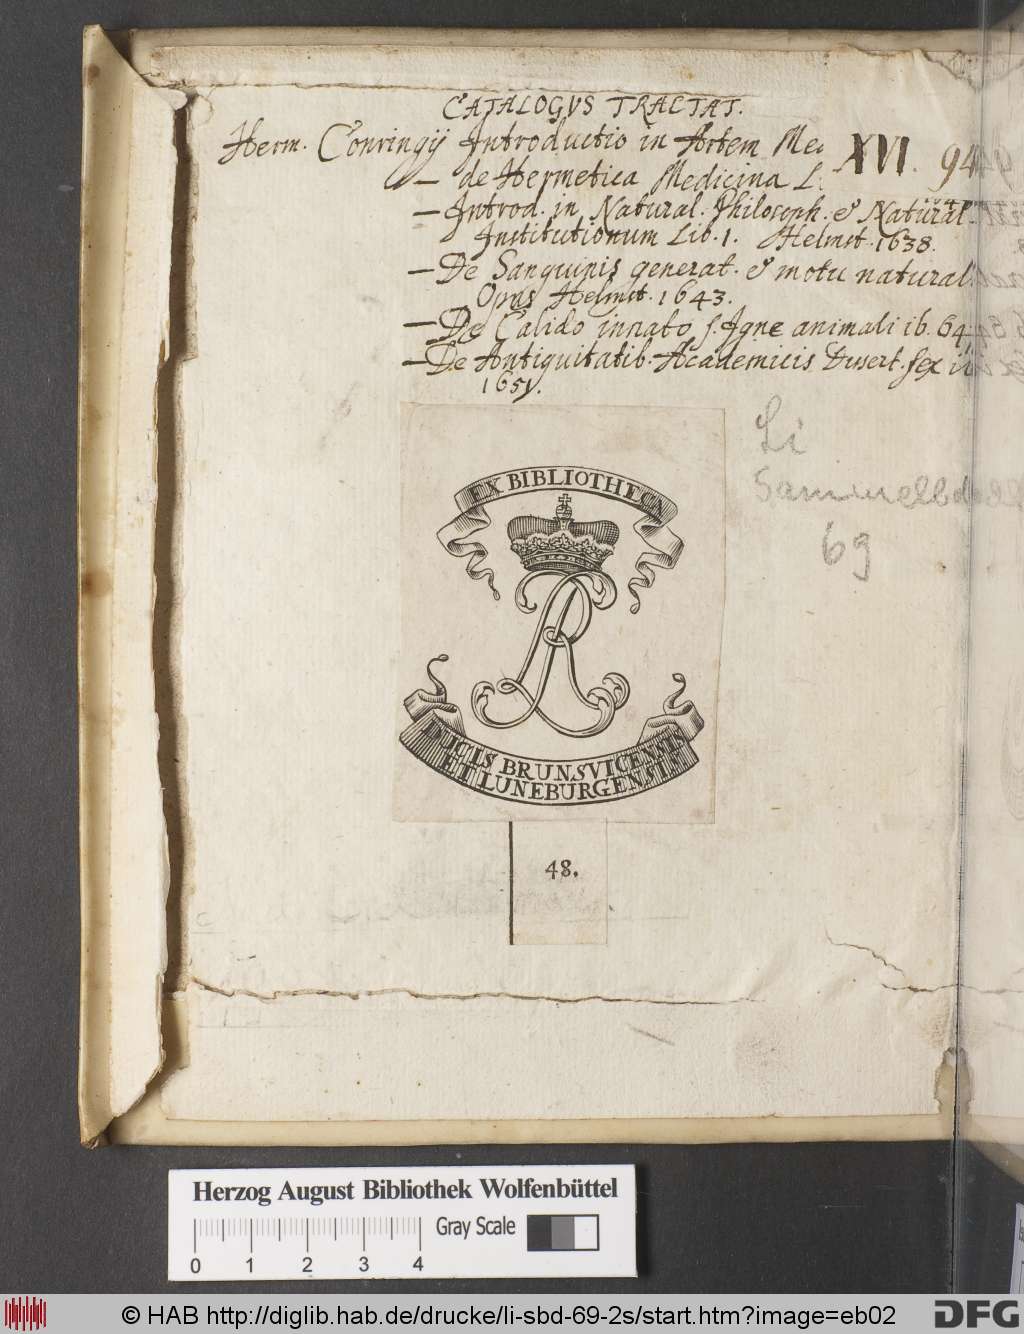 CATALOGVS TRACTAT.
Herm. Conringij Introductio in Artem Me
XVI. 94
— de Hermetica Medicina L.
— Introd. in Natural. Philosoph. & Natural.
Institutionum Lib. 1. Helmst. 1638.
— De Sanguinis generat. & motu natural.
Opus Helmst. 1643.
— De Calido innato s. Igne animali ib. 64
— De Antiquitatib. Academicis Dissert. sex
1651.
Li
Sammelbd
69
EX BIBLIOTHECA
DUCIS BRUNSVICENSIS
ET LUNEBURGENSIS
48.
Herzog August Bibliothek Wolfenbüttel
Gray Scale
0 1 2 3 4
© HAB http://diglib.hab.de/drucke/li-sbd-69-2s/start.htm?image=eb02
DFG